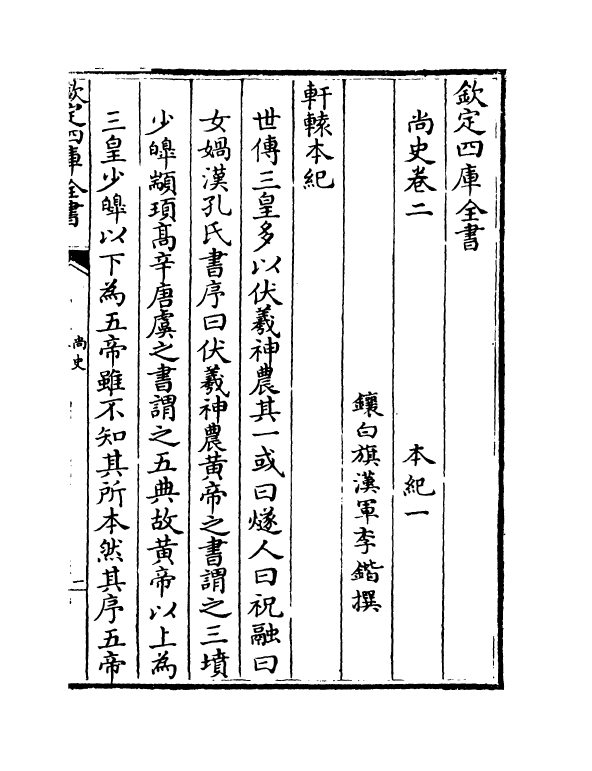 欽定四庫全書
尚史卷二　　　　　本紀一
鑲白旗漢軍李鍇撰
軒轅本紀
世傳三皇多以伏羲神農其一或曰燧人曰祝融曰
女媧漢孔氏書序曰伏羲神農黃帝之書謂之三墳
少皥顓頊髙辛唐虞之書謂之五典故黃帝以上為
三皇少皥以下為五帝雖不知其所本然其序五帝
欽定四庫全書
尚史